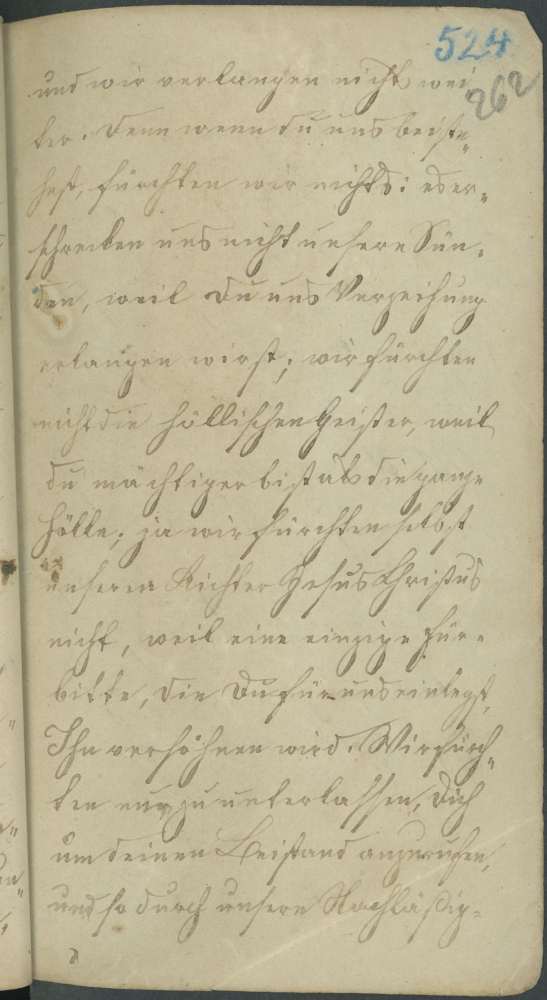 524
262
und wir verlangen nicht wei
ter. Denn wenn du uns beiste=
hest, fürchten wir nichts: es er=
schrecken uns nicht unsere Sün=
den, weil Du uns Verzeihung
erlangen wirst; wir fürchten
nicht die höllischen Geister, weil
du mächtiger bist als die ganze
Hölle; ja wir fürchten selbst
unseren Richter Jesus Christus
nicht, weil eine einzige Für=
bitte, die Du für uns einlegst,
Ihn versöhnen wird. Wir fürch=
ten nur zu unterlassen, Dich
um deinen Beistand anzurufen,
und so durch unsere Nachläßig=